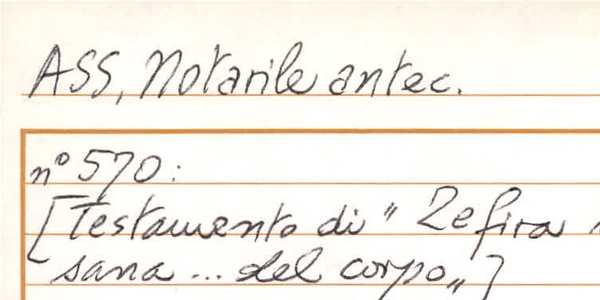 ASS, Notarile antec.
n° 570:
[Testamento di "Zefira
sana... del corpo"]